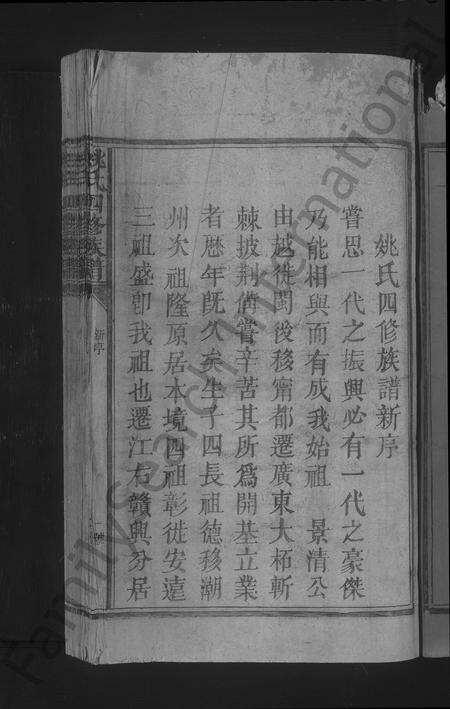 姚氏四修族譜新序
嘗思一代之振興必有一代之豪傑
乃能相與而有成我始祖 景清公
由越徙閩後移甯都遷廣東大柘斬
棘披荆備嘗辛苦其所為開基立業
者歷年旣久矣生子四長祖德移潮
州次祖隆原居本境四祖彰徙安遠
三祖盛卽我祖也遷江右贛興分居
姚氏四修族譜
新序
一
FamilySearch International